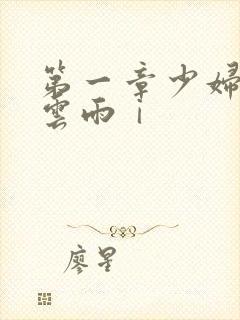 第一章少婦
雲雨｜
廖星